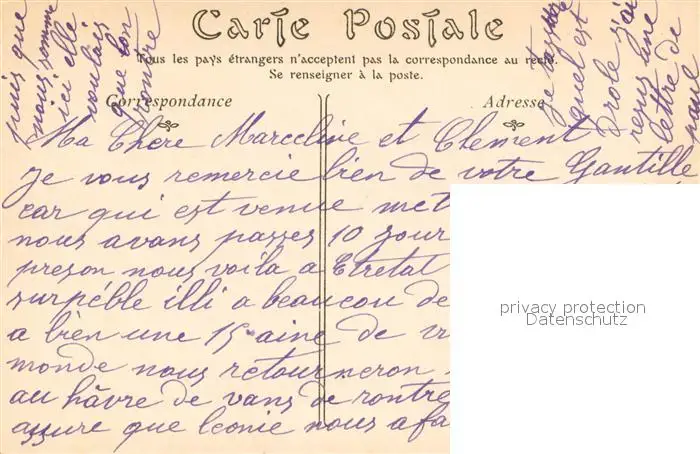 Carte Postale
Tous les pays étrangers n'acceptent pas la correspondance au recto.
Se renseigner à la poste.
Correspondance
Adresse
Ma Chere Marceline et Clement
je vous remercie bien de votre Gantille
car qui est venue met
nous avans passes 10 jour
preson nous voila a Etretat
surpéble illi a beaucou de
a bien une 15 aine de
monde nous retourneron
au hâvre de vans de rontre
assure que leonie nous a fa
puis que
nous somme
ici elle
voulais
que lon
rontre
quel est
drole j'ai
resus une
lettre de
privacy protection
Datenschutz